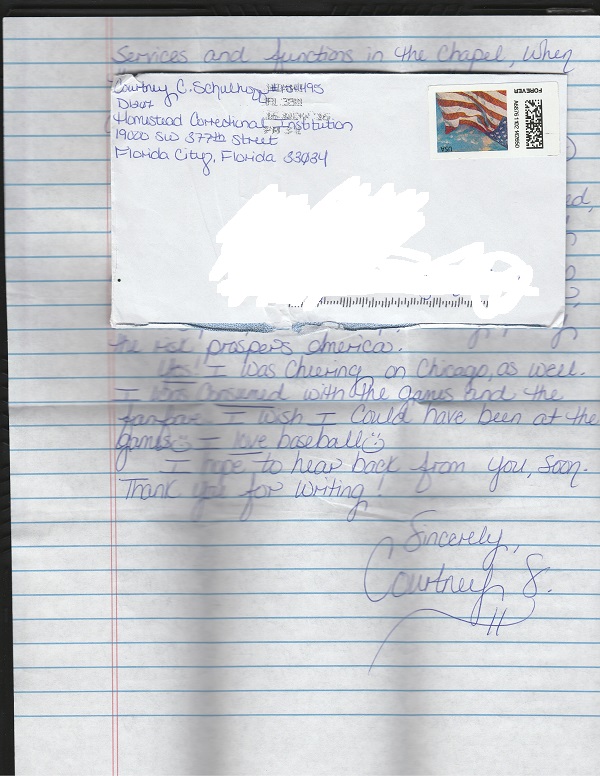 Services and functions in the Chapel, When
Courtney C. Schulhoff
Homestead Correctional Institution
19000 SW 377th Street
Florida City, Florida 33034
FOREVER
USA
the risk, prospers america.
Yes! I was cheering on Chicago, as well.
I was consumed with the games and the
fanfare. I wish I could have been at the
games☺ I love baseball☺
I hope to hear back from you, soon.
Thank you for writing!
Sincerely,
Courtney S.